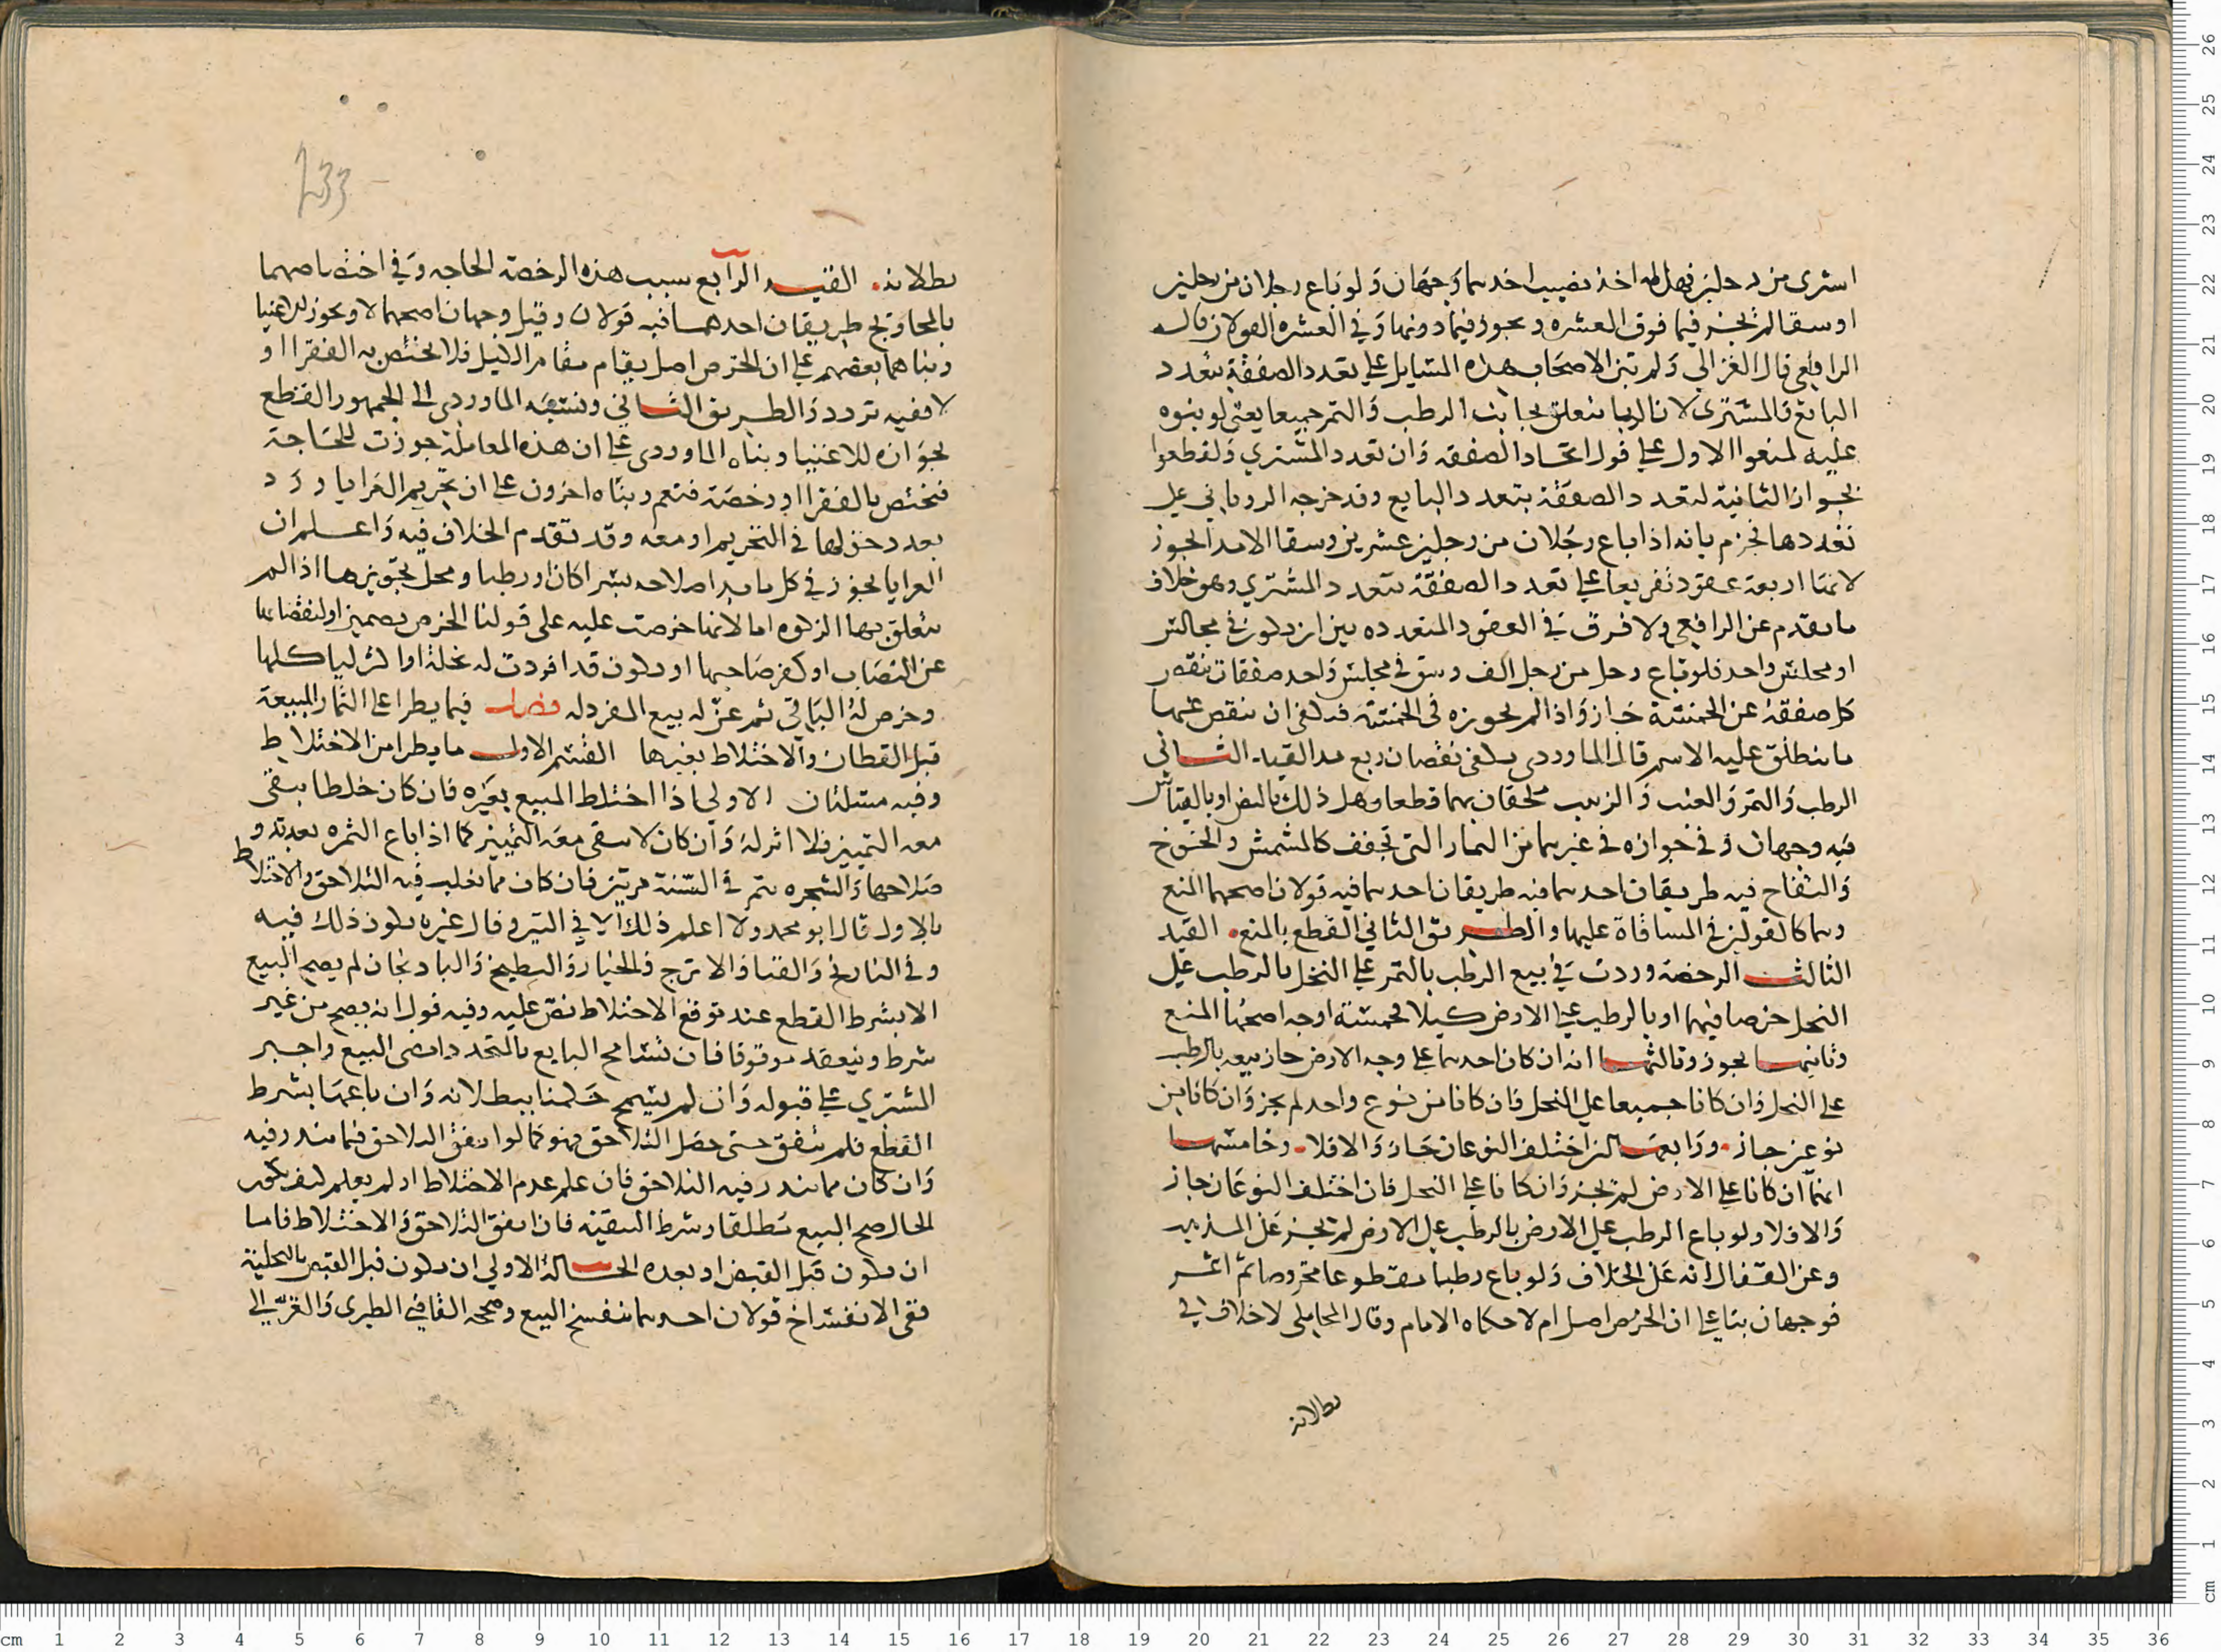 اشترى من رجلين فهل له اخذ نصيب احدهما وجهان ولو باع رجلان من رجلين
اوسقا لم يجز فيما فوق العشره ويجوز فيما دونها وفي العشره القولان قال
الرافعي قال الغزالي ولم تبن الاصحاب هذه المسايل على تعدد الصفقة بتعدد
البائع والمشتري لان الربا يتعلق بجانب الرطب والتمر جميعا يعني لو بنوه
عليه لمنعوا الاول على قول اتحاد الصفقه وان تعدد المشتري ولقطعوا
بجواز الثانية لتعدد الصفقة بتعدد البايع وقد خرجه الروياني على
تعددها فجزم بانه اذا باع رجلان من رجلين عشرين وسقا الا مدا يجوز
لانها اربعة عقود تفريعا على تعدد الصفقة بتعدد المشتري وهو خلاف
ما تقدم عن الرافعي ولا فرق في العقود المتعدده بين ان يكون في مجالس
او مجلس واحد فلو باع رجل من رجل الف وسق في مجلس واحد صفقات ينقص
كل صفقة عن الخمسة جاز واذا لم يجوزه في الخمسة فيكفي ان ينقص عنها
ما ينطلق عليه الاسم قال الماوردي يكفي نقصان ربع مد القيد الثاني
الرطب والتمر والعنب والزبيب ملحقان بهما قطعا وهل ذلك بالنص او بالقياس
فيه وجهان وفي جوازه في غيرهما من الثمار التي تجفف كالمشمش والخوخ
والتفاح فيه طريقان احدهما فيه طريقان احدهما فيه قولان اصحهما المنع
وهما كالقولين في المساقاة عليها والطريق الثاني القطع بالمنع. القيد
الثالث الرخصة وردت في بيع الرطب بالتمر على النخل بالرطب على
النخل خرصا فيهما او بالرطب على الارض كيلا فخمسة اوجه اصحها المنع
وثانيها يجوز وثالثها انه ان كان احدهما على وجه الارض جاز بيعه بالرطب
على النخل وان كانا جميعا على النخل فان كانا من نوع واحد لم يجز وان كانا من
نوعين جاز. ورابعها ان اختلف النوعان جاز والا فلا. وخامسها
انهما ان كانا على الارض لم يجز وان كانا على النخل فان اختلف النوعان جاز
والا فلا ولو باع الرطب على الارض بالرطب على الارض لم يجز على المذهب
وعن القفال انه على الخلاف ولو باع رطبا مقطوعا مخروصا ثم اتمر
فوجهان بنا على ان الخرص اصل ام لا حكاه الامام وقال المحاملي لا خلاف في
بطلانه
بطلانه. القيد الرابع سبب هذه الرخصة الحاجه وفي اختصاصهما
بالمحاويج طريقان احدهما فيه قولان وقيل وجهان اصحهما لا ويجوز للاغنيا
وبناهما بعضهم على ان الخرص اصل يقام مقام الكيل فلا يختص به الفقرا او
لا ففيه تردد والطريق الثاني ونسبه الماوردي الى الجمهور القطع
بجوازه للاغنيا وبناه الماوردي على ان هذه المعاملة جوزت للحاجة
فتختص بالفقرا او رخصة فتعم وبناه اخرون على ان تحريم العرايا ورد
بعد دخولها في التحريم او معه وقد تقدم الخلاف فيه واعلم ان
العرايا يجوز في كل ما بدا صلاحه بسرا كان او رطبا ومحل تجويزها اذا لم
يتعلق بها الزكوه اما لانها خرصت عليه على قولنا الخرص تضمين او لنقصانها
عن النصاب او كفر صاحبها او يكون قد افردت له نخلة اوا كثر لياكلها
وخرص له الباقي ثم عن له بيع المفرد له فصل فيما يطرا على الثمار المبيعة
قبل القطان والاختلاط بغيرها القسم الاول ما يطرا من الاختلاط
وفيه مسئلتان الاولى اذا اختلط المبيع بغيره فان كان خلطا يبقى
معه التمييز فلا اثر له وان كان لا يبقى معه التمييز كما اذا باع الثمره بعد بدو
صلاحها والشجره يثمر في السنة مرتين فان كان مما يغلب فيه التلاحق والاختلاط
بالاول قال ابو محمد ولا اعلم ذلك الا في التين وقال غيره يكون ذلك فيه
وفي النارنج والقثا والاترج والخيار والبطيخ والبادنجان لم يصح البيع
الا بشرط القطع عند توقع الاختلاط نص عليه وفيه قول انه يصح من غير
شرط وينعقد موقوفا فان تسامح البايع بالمتحدد امضى البيع واجبر
المشتري على قبوله وان لم يتسمح حكمنا ببطلانه وان باعها بشرط
القطع فلم يتفق حتى حصل التلاحق فهو كما لو اتفق التلاحق فيما يندر فيه
وان كان مما يندر فيه التلاحق فان علم عدم الاختلاط او لم يعلم كيف تكون
الحال صح البيع مطلقا وشرط التبقية فان اتفق التلاحق والاختلاط فاما
ان يكون قبل القبض او بعده الحالة الاولى ان يكون قبل القبض بالتخلية
ففي الانفساخ قولان احدهما ينفسخ البيع وصححه القاضي الطبري والغزالي